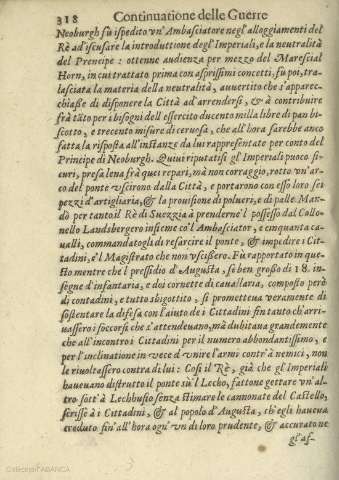 318 Continuatione delle Guerre
Neoburgh fù ispedito vn'Ambasciatore negl'alloggiamenti del
Rè ad iscusare la introduttione degl'Imperiali, e la neutralità
del Prencipe: ottenue audienza per mezzo del Marescial
Horn, in cui trattato prima con asprissimi concetti, fù poi, tra-
lasciata la materia della neutralità, auuertito che s'apparec-
chiasse di disponere la Città ad arrendersi, & à contribuire
frà tãto per i bisogni dell'essercito ducento milla libre di pan bi-
scotto, e trecento misure di ceruosa, che all'hora sarebbe anco
fatta la risposta all'instanze da lui rappresentate per conto del
Principe di Neoburgh. Quiui riputatisi gl'Imperiali puoco si-
curi, presa lena frà quei repari, mà non corraggio, rotto vn'ar-
co del ponte vscirono dalla Città, e portarono con esso loro sei
pezzi d'artigliaria, & la prouisione di polueri, e di palle. Man-
dò per tanto il Rè di Suezzia à prenderne'l possesso dal Collo-
nello Landsbergero insieme co'l Ambasciator, e cinquanta ca-
ualli, commandatogli di resarcire il ponte, & impedire i Cit-
tadini, e'l Magistrato che non vscissero. Fù rapportato in que-
sto mentre che'l pressidio d'Augusta, se ben grosso di 18. in-
segne d'infantaria, e doi cornette di cauallaria, composto però
di contadini, e tutto sbigottito, si prometteua veramente di
sostentare la difesa con l'aiuto de i Cittadini fin tanto ch'arri-
uassero i soccorsi che s'attendeuano, mà dubitaua grandemente
che all'incontro i Cittadini per il numero abbondantissimo, e
per l'inclinatione in vece d'vnire l'armi contr'à nemici, non
le riuoltassero contra di lui: Così il Rè, già che gl'Imperiali
haueuano distrutto il ponte sù'l Lecho, fattone gettare vn'al-
tro sott'à Lechhusio senza stimare le cannonate del Castello,
scrisse à i Cittadini, & al popolo d'Augusta, ch'egli haueua
creduto fin'all'hora ogn'vn di loro prudente, & accurato ne
gl'af-